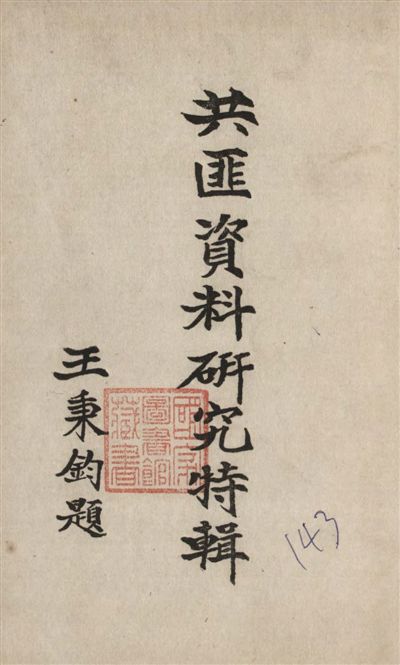 共匪資料研究特輯
王秉鈞題
圖書館
藏書
143